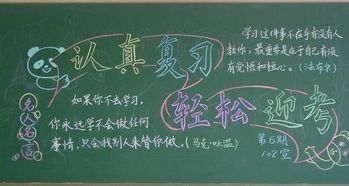 认真复习
学习这件事不在乎有没有人
教你，最重要是在于自己有没
有觉悟和恒心。（法布尔）
轻松迎考
名人名言
如果你不去学习，
你永远学不会做任何
事情，只会找别人来替你做。（马克·吐温）
第6期
102室